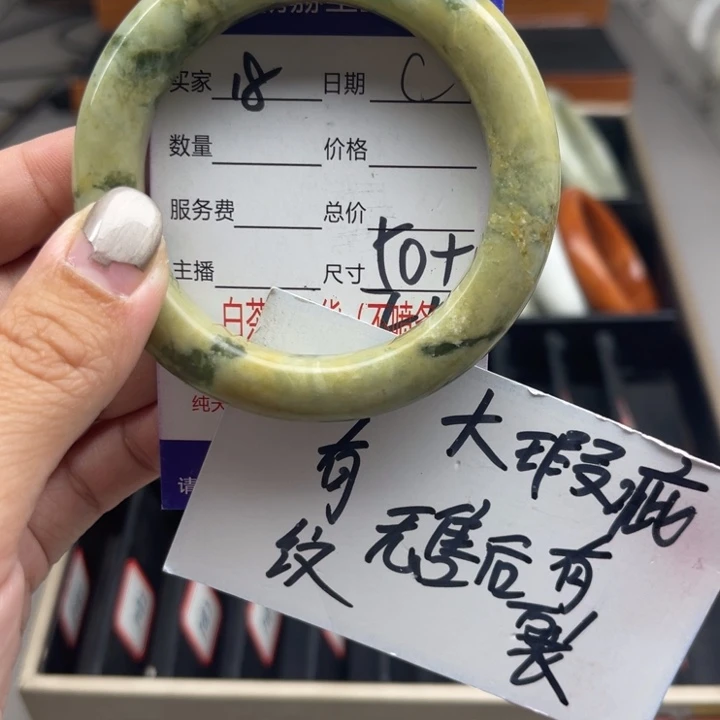 买家 18 日期 C
数量 价格
服务费 总价
主播 尺寸 50+
白茶
纯天
请
大瑕疵
有纹
无售后有裂